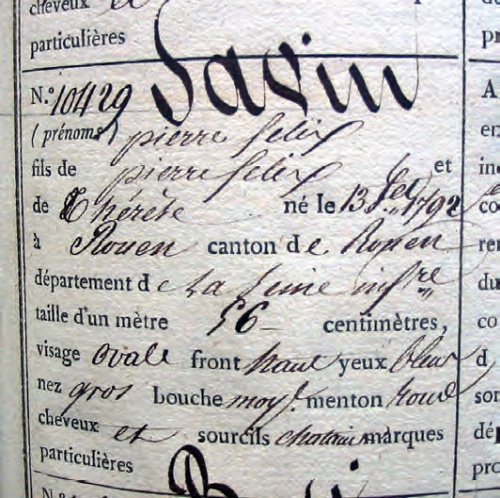 cheveux et
particulières
Savin
N.° 10429
(prénoms) pierre felix
fils de pierre felix et
de Thérèse né le 13 1792
à Rouen canton de Rouen
département de La Seine infre
taille d'un mètre 56 centimètres,
visage ovale front haut yeux bleus
nez gros bouche moy. menton rond
cheveux et sourcils chatain marques
particulières